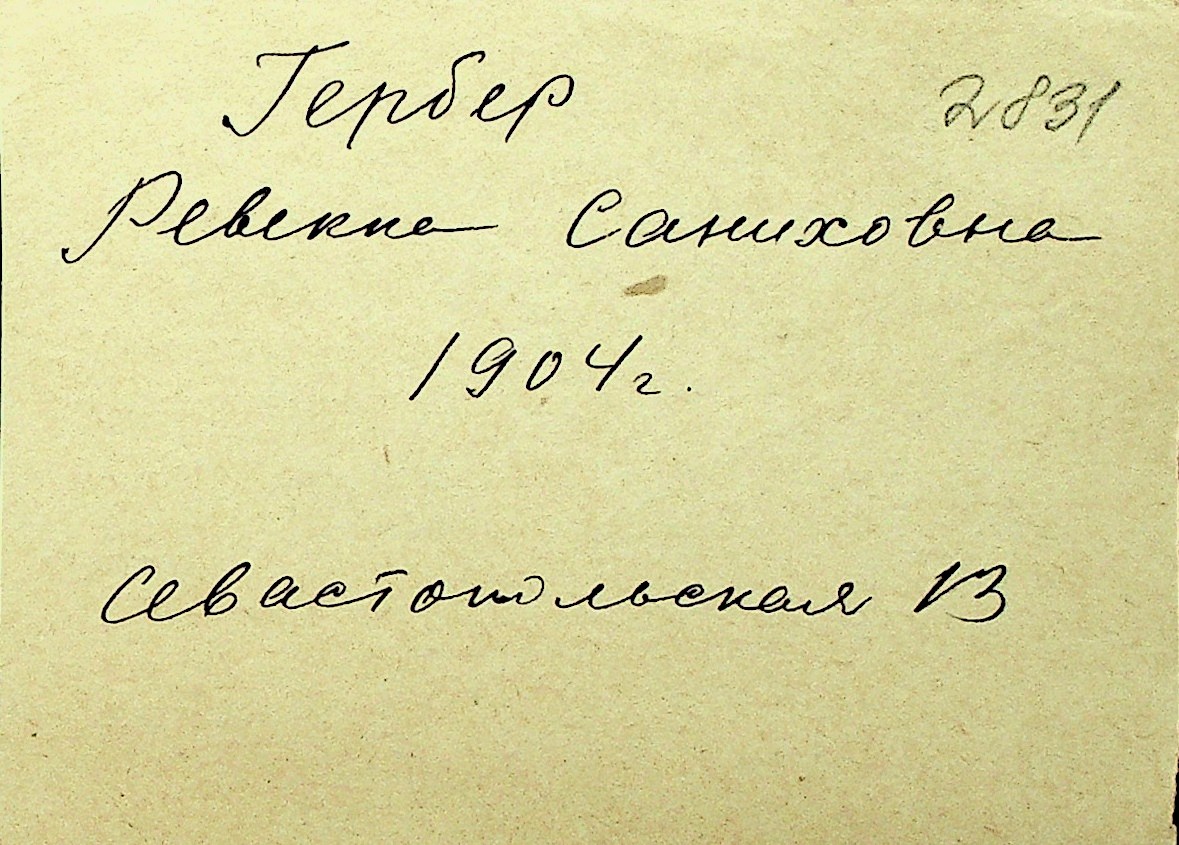 Гербер 2831
Ревекка Саниховна
1904г.
Севастопольская 13